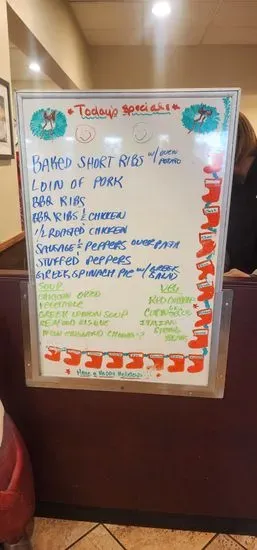 *Today's Specials*
BAKED SHORT RIBS w/ OVEN POTATO
LOIN OF PORK
BBQ RIBS
BBQ RIBS & CHICKEN
1/2 ROASTED CHICKEN
SAUSAGE & PEPPERS OVER PASTA
STUFFED PEPPERS
GREEK SPINACH PIE w/ GREEK SALAD
SOUP
CHICKEN ORZO
VEGETABLE
GREEK LEMON SOUP
SEAFOOD BISQUE
NEW ENGLAND CHOWDER
VEG
RED CABBAGE
ITALIAN
Have a Happy Holidays